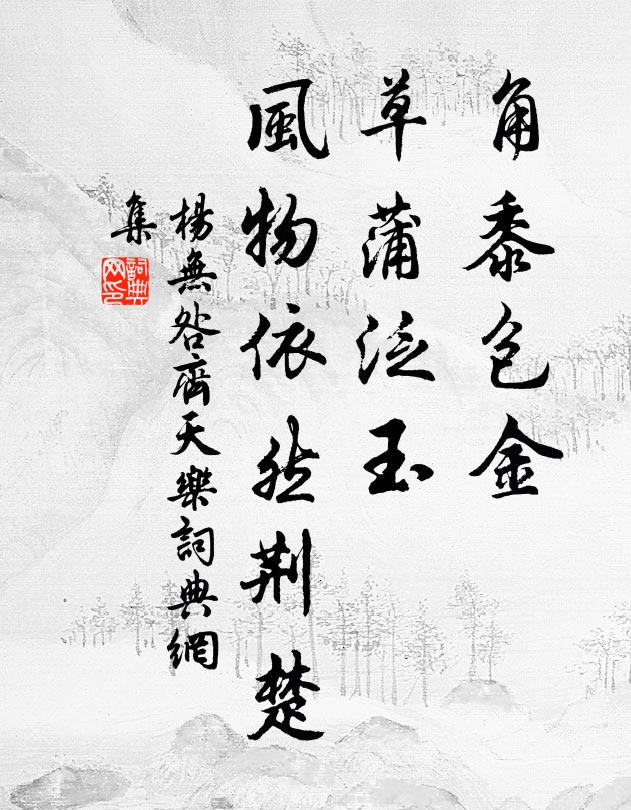 角黍包金
草蒲泛玉
風物依然荆楚
楊無咎齊天樂詞典網
集
詞典
网印